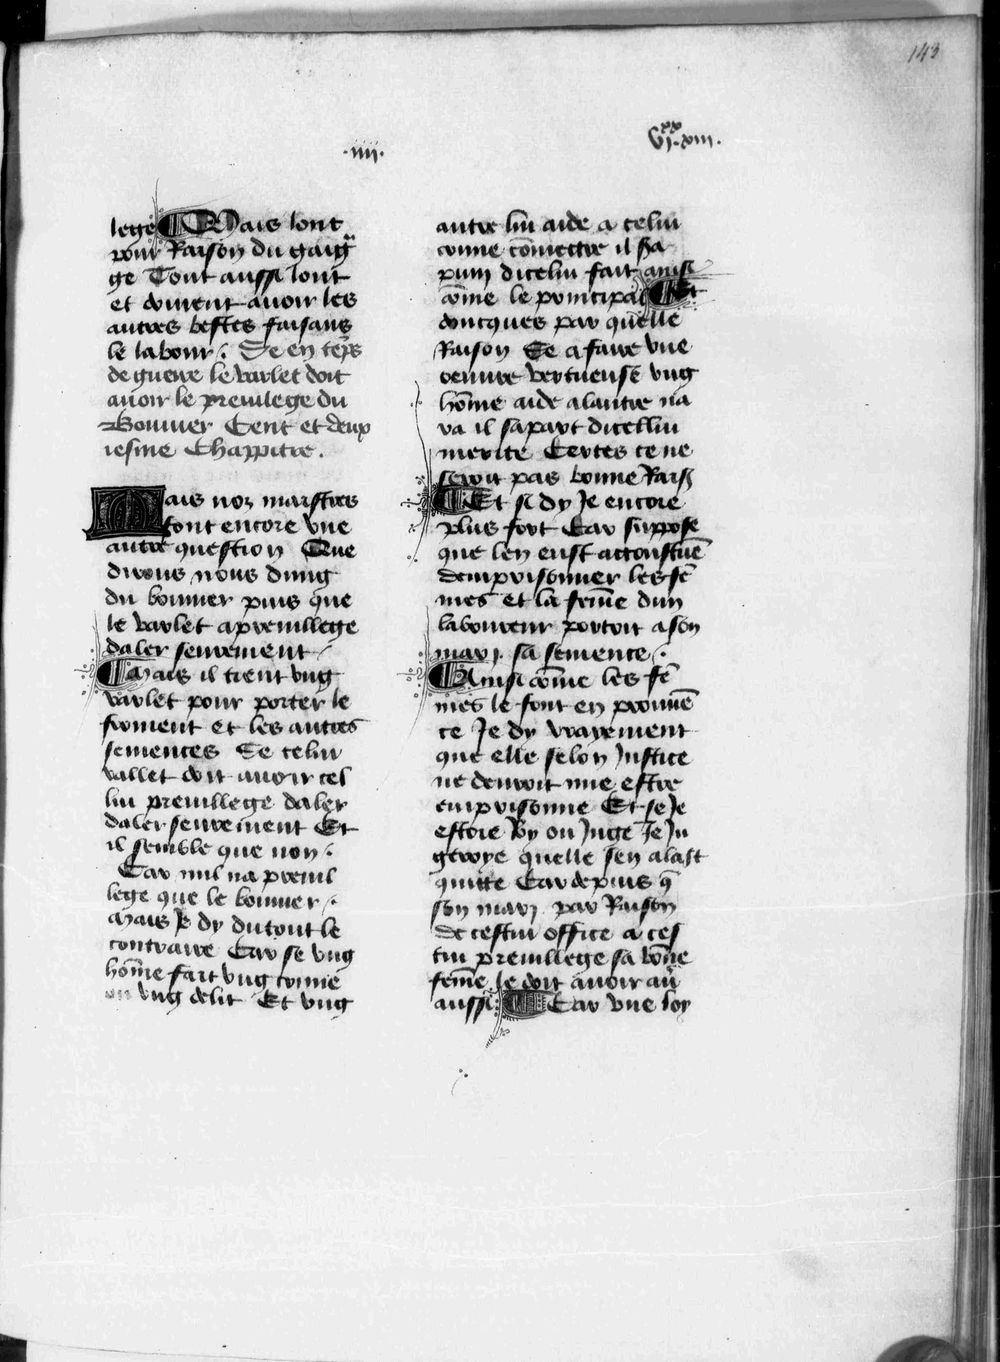 143
.iiii.
vi.xx xiii.
lege Mais lont
pour Raison du gaig
ge Tout aussi lont
et doiuent auoir les
autres bestes faisans
le labour . Se en temps
de guerre le varlet doit
auoir le preuilege du
Bouuier Cent et deux
iesme Chappitre .
Mais noz maistres
font encore vne
autre question Que
dirons nous dung
du bouuier puis que
le varlet a preuillege
daler seurement .
Mais il tient vng
varlet pour porter le
froment et les autres
semences Se celui
vallet doit auoir cel
lui preuillege daler
daler seurement Et
il semble que non .
Car nul na preuil
lege que le bouuier .
Mais Je dy du tout le
contraire Car se vng
hõme fait vng crime
ou vng delit Et vng
autre lui aide a celui
crime cõmectre il sa
puni dicelui fait ainsi
cõme le principal Et
doncques par quelle
Raison Se a faire vne
oeuure vertueuse vng
hõme aide a lautre na
ra il sa part dicellui
merite Certes ce ne
seroit pas bonne Rais
Et si dy Je encore
plus fort Car suppose
que len eust acoustumẽ
demprisonner les fẽ
mes et la femẽ dun
laboureur portoit a son
mari sa semence .
Ainsi cõme les fẽ
mes le font en prouuẽ
ce Je dy vrayement
que elle selon Justice
ne deuroit mie estre
emprisonnie Et se Je
estoie Roy ou Juge Je Ju
geroye quelle sen alast
quitte Car depuis q̃
son mari par Raison
de cestui office a ces
tui preuillege sa bõne
femẽ le doit auoir au
aussi Car vne loy